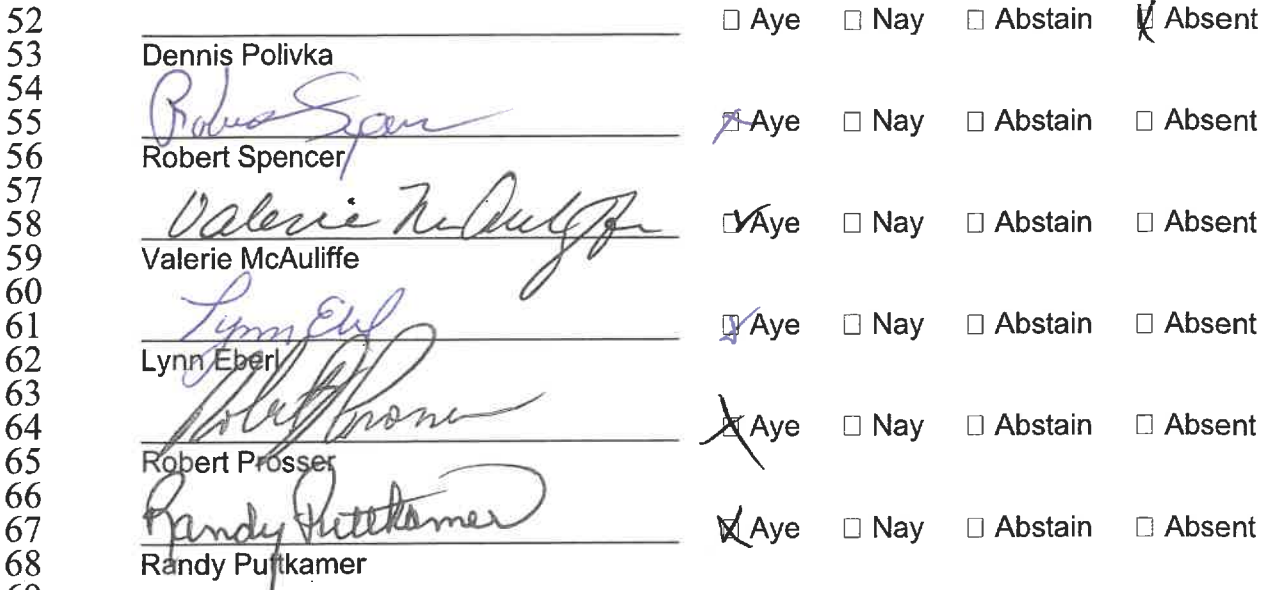 52 ☐ Aye ☐ Nay ☐ Abstain ☑ Absent
53 Dennis Polivka
54
55 ☒ Aye ☐ Nay ☐ Abstain ☐ Absent
56 Robert Spencer
57
58 Valerie McAuliffe ☑ Aye ☐ Nay ☐ Abstain ☐ Absent
59 Valerie McAuliffe
60
61 Lynn Eberl ☑ Aye ☐ Nay ☐ Abstain ☐ Absent
62 Lynn Eberl
63
64 Robert Prosser ☒ Aye ☐ Nay ☐ Abstain ☐ Absent
65 Robert Prosser
66
67 Randy Puttkamer ☒ Aye ☐ Nay ☐ Abstain ☐ Absent
68 Randy Puttkamer